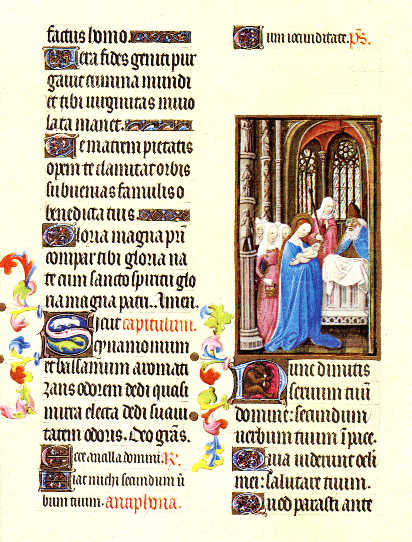 factus homo.
Uera fides geniti pur
gauit crimina mundi
et tibi uirginitas inuio
lata manet.
Te matrem pietatis
opem te clamitat orbis
subuenias famulis o
benedicta tuis.
Gloria magna pr̄i
compar tibi gloria na
te cum sancto spiritu glo
ria magna patri. Amen.
Sicut capitulum.
cynamomum
et balsamum aromati
zans odorem dedi quasi
mirra electa dedi suaui
tatem odoris. Deo grās.
Ecce ancilla domini. R.
Fiat michi secundum ū
bum tuum. antiphona.
Cum iocunditate. p̄s.
Nunc dimitis
seruum tuū
domine: secundum
uerbum tuum ī pace.
Quia uiderunt oculi
mei: salutare tuum.
Quod parasti ante